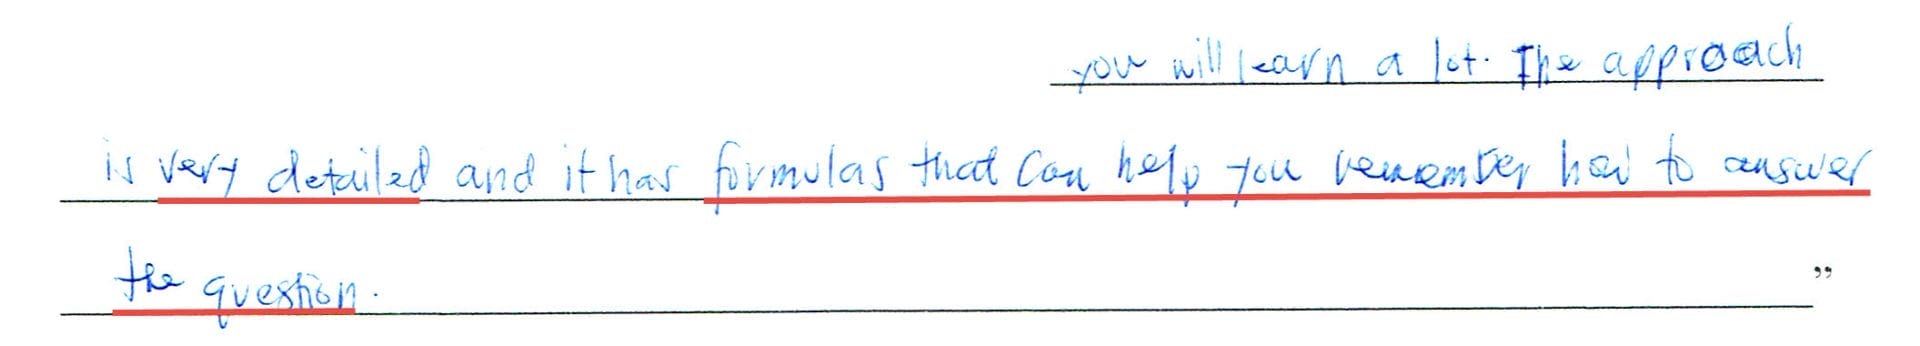 you will learn a lot. The approach
is very detailed and it has formulas that can help you remember how to answer
the question. ”